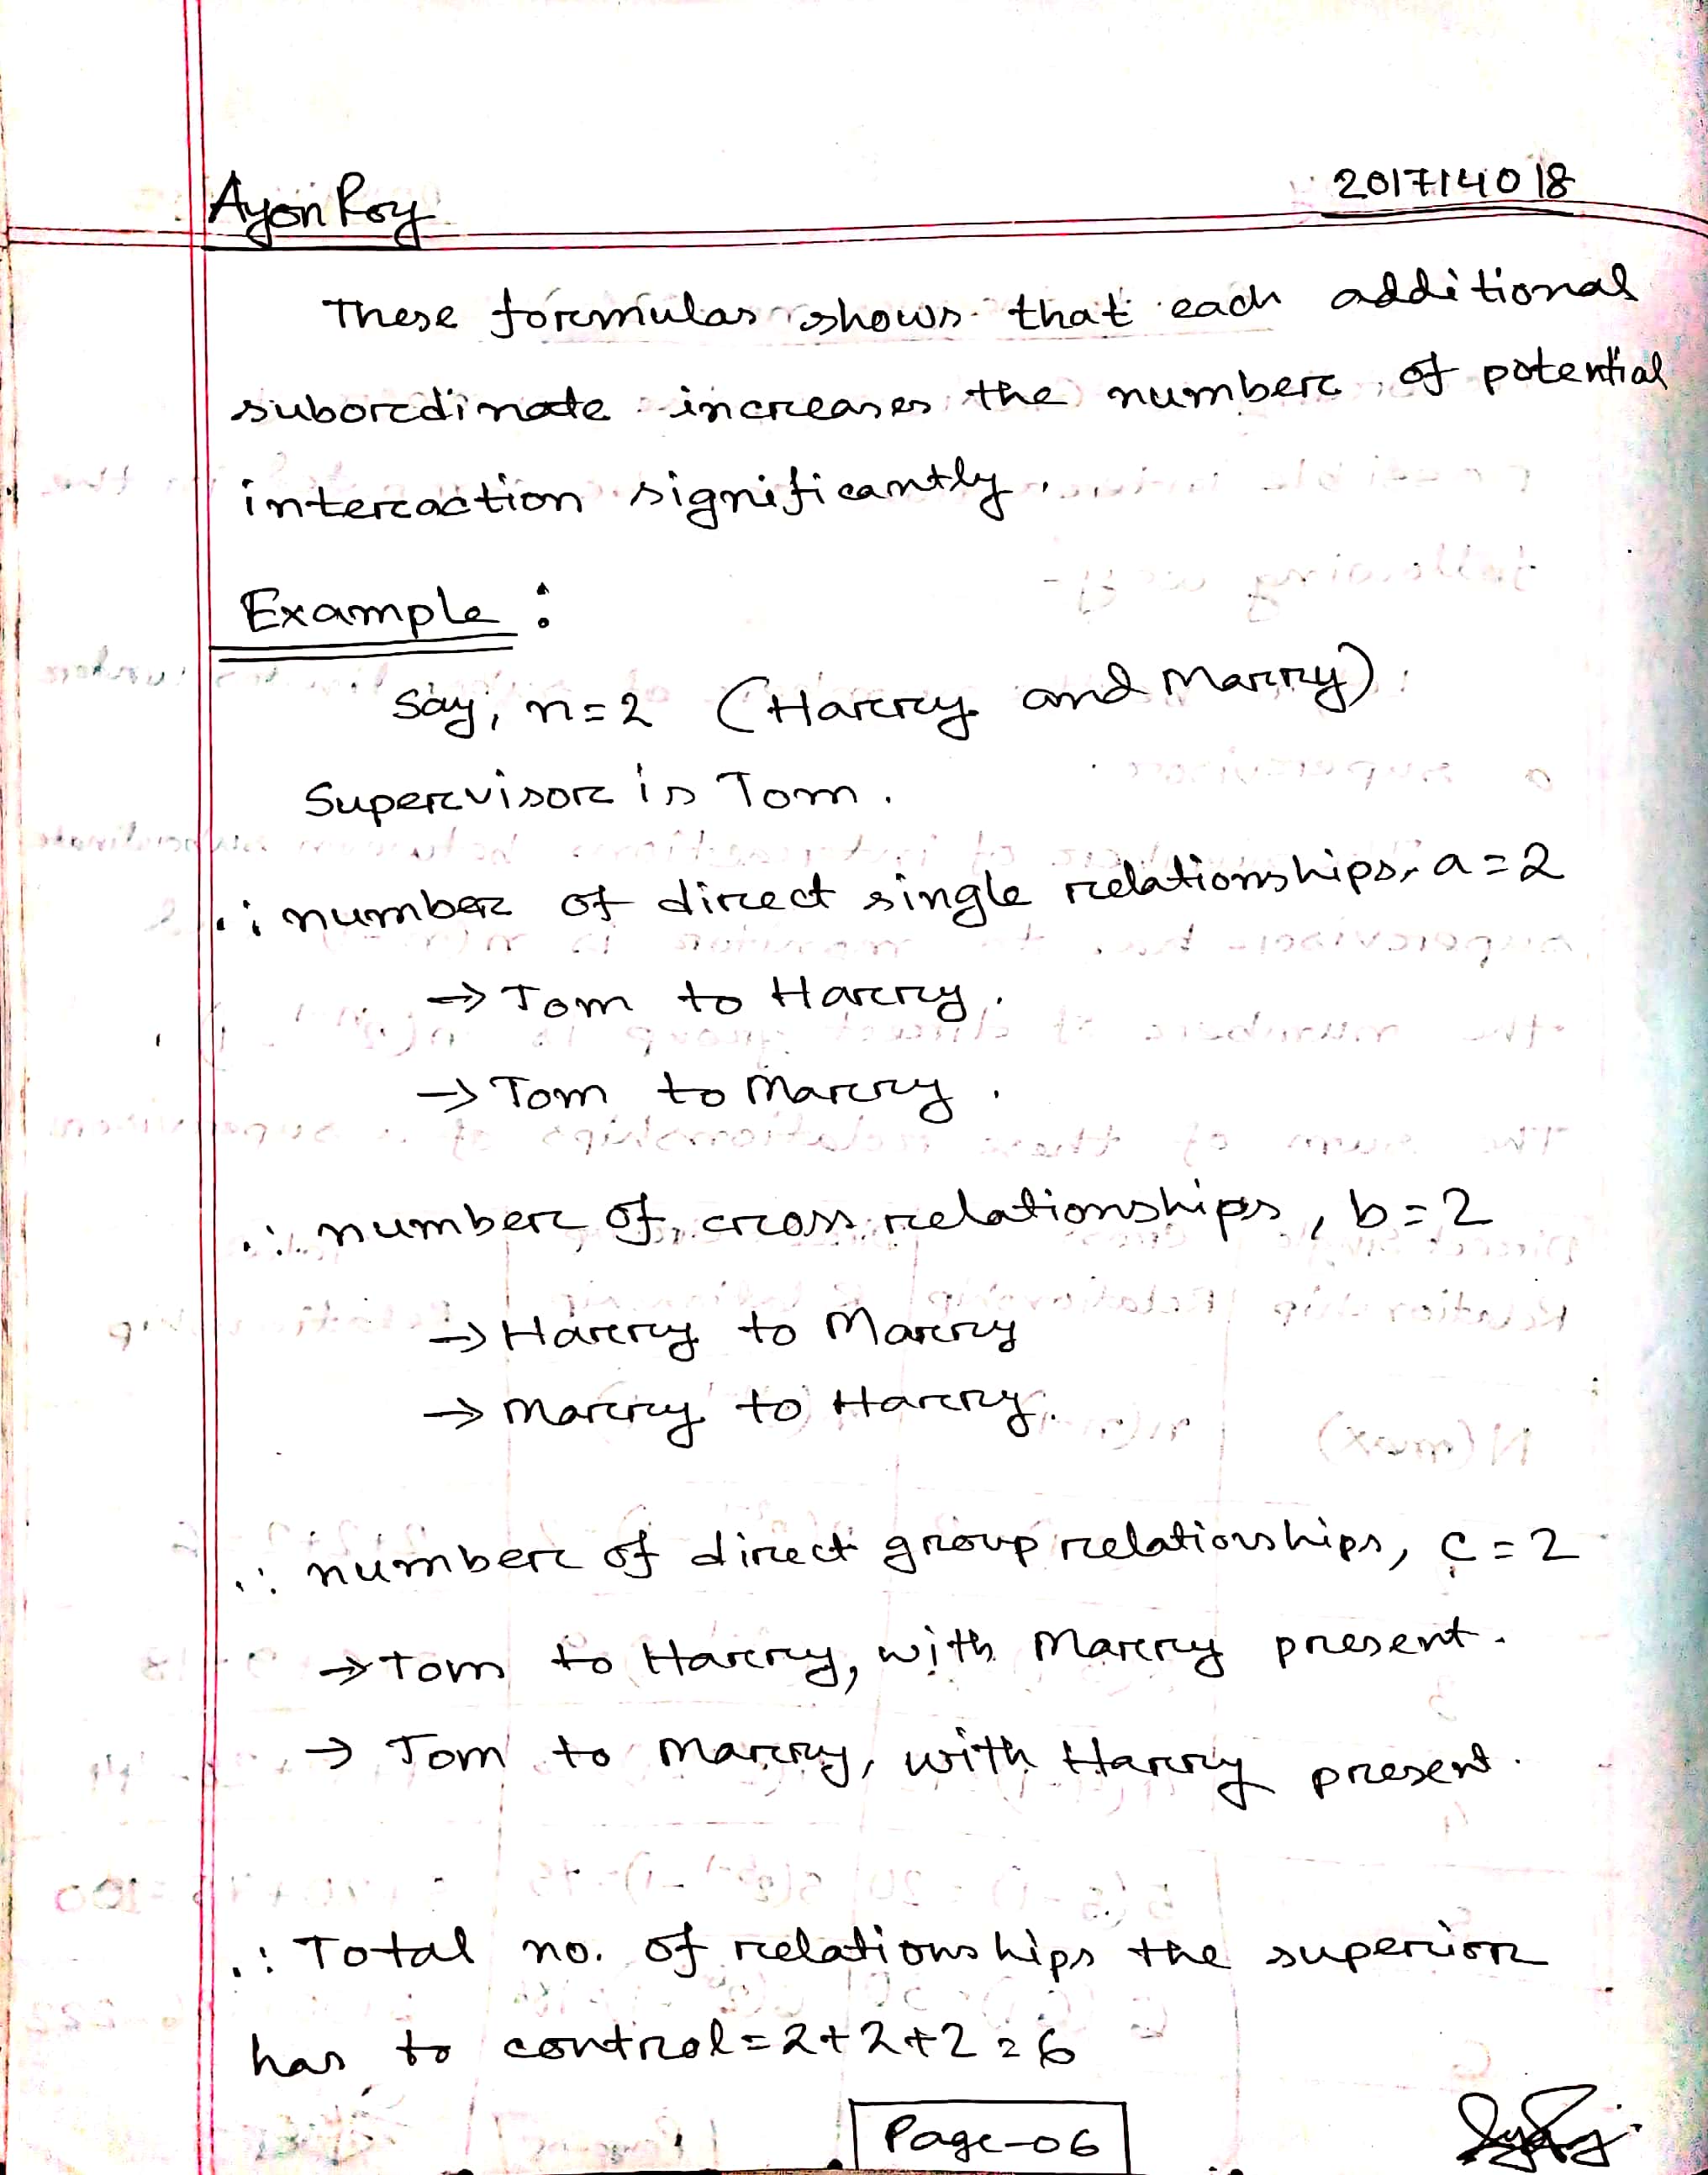 Ayon Roy
201714018
These formulas shows that each additional
subordinate increases the number of potential
interaction significantly.
Example :
Say, n=2 (Harry and Marry)
Supervisor is Tom.
∴ number of direct single relationships, a=2
→ Tom to Harry.
→ Tom to Marry.
∴ number of cross relationships, b=2
→ Harry to Marry
→ Marry to Harry.
∴ number of direct group relationships, c=2
→ Tom to Harry, with Marry present.
→ Tom to Marry, with Harry present.
∴ Total no. of relationships the superior
has to control = 2+2+2 = 6
Page-06